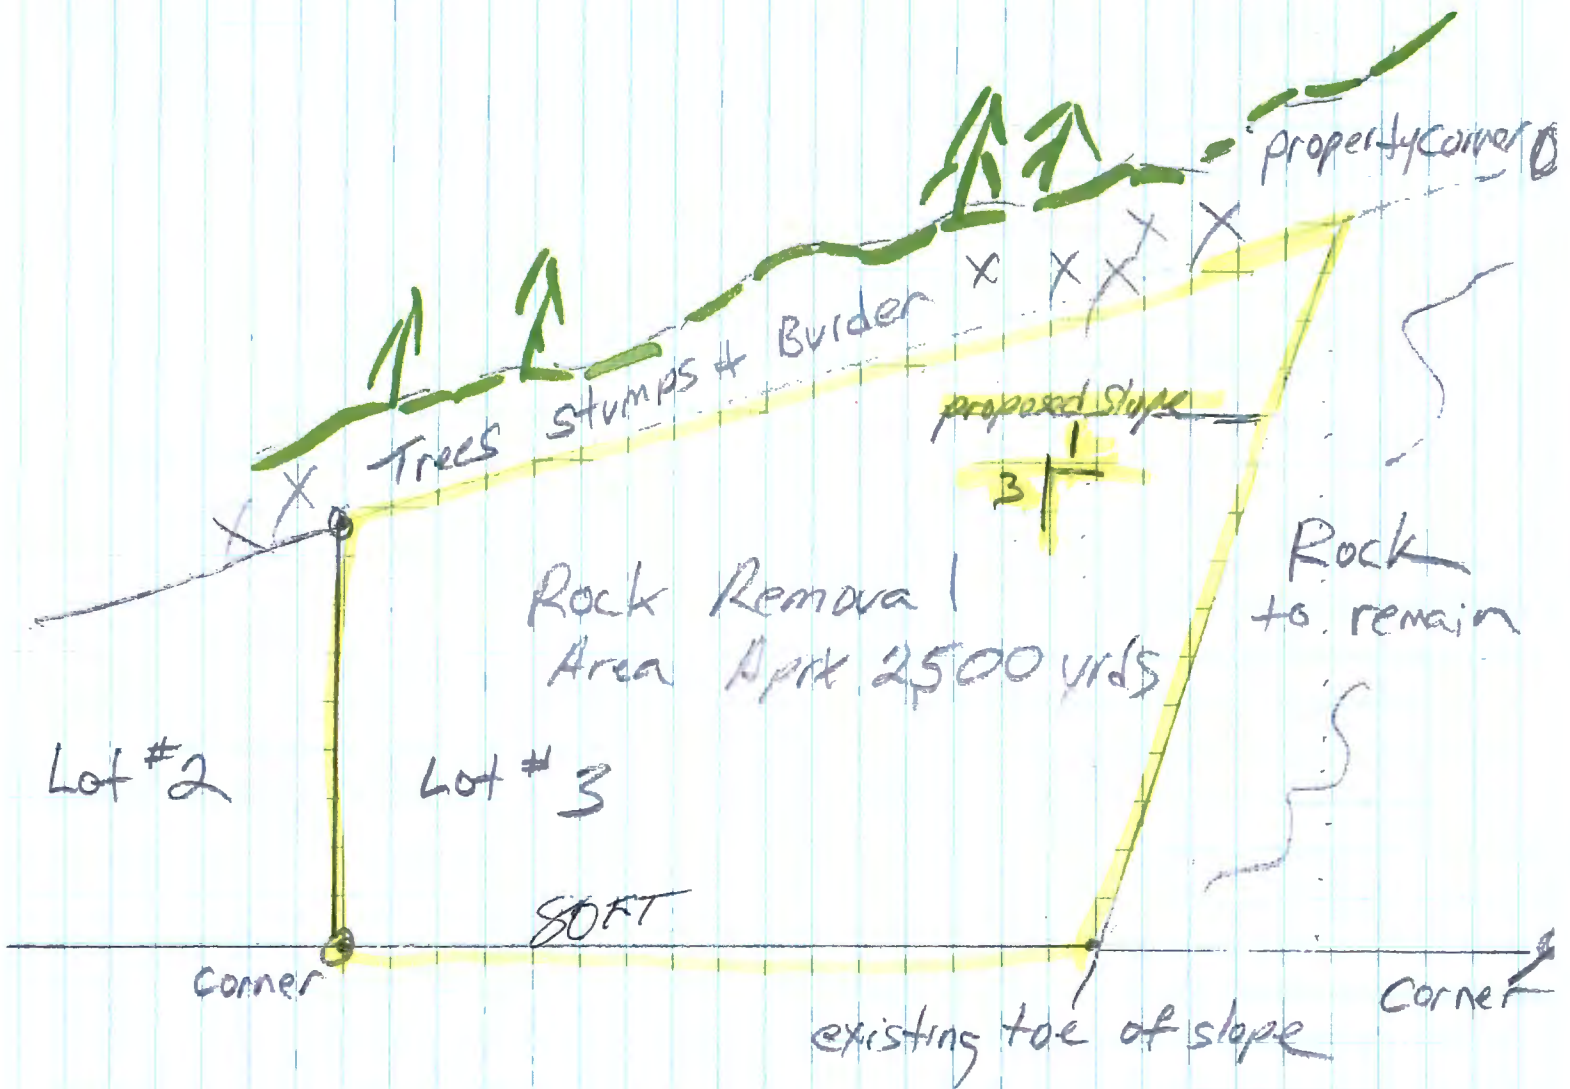 property corner
Trees stumps + Burder
proposed slope
1
3
Rock Removal
Area Aprx 2,500 yrds
Rock
to remain
Lot #2
Lot # 3
80FT
corner
Corner
existing toe of slope